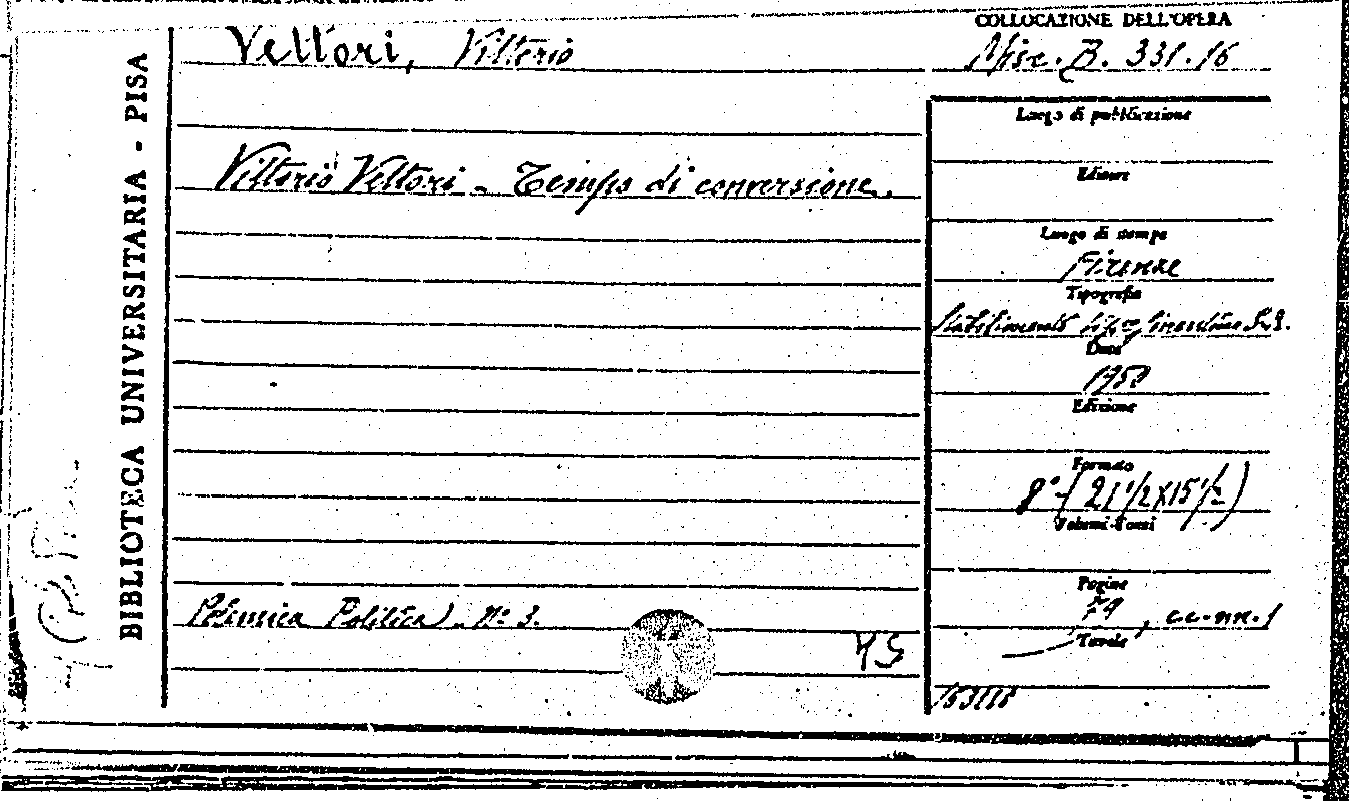 COLLOCAZIONE DELL'OPERA
Vettori, Vittorio
Misc. B. 331.16
BIBLIOTECA UNIVERSITARIA - PISA
Vittorio Vettori - Tempo di conversione.
Polemica Politica). Nº 3.
Luogo di pubblicazione
Editore
Luogo di stampa
Firenze
Tipografia
Stabilimento
Data
Edizione
Formato
8°-(21 1/2 X 15 1/2)
Volumi-Tomi
Pagine
, cc. nn. 1
Tavole